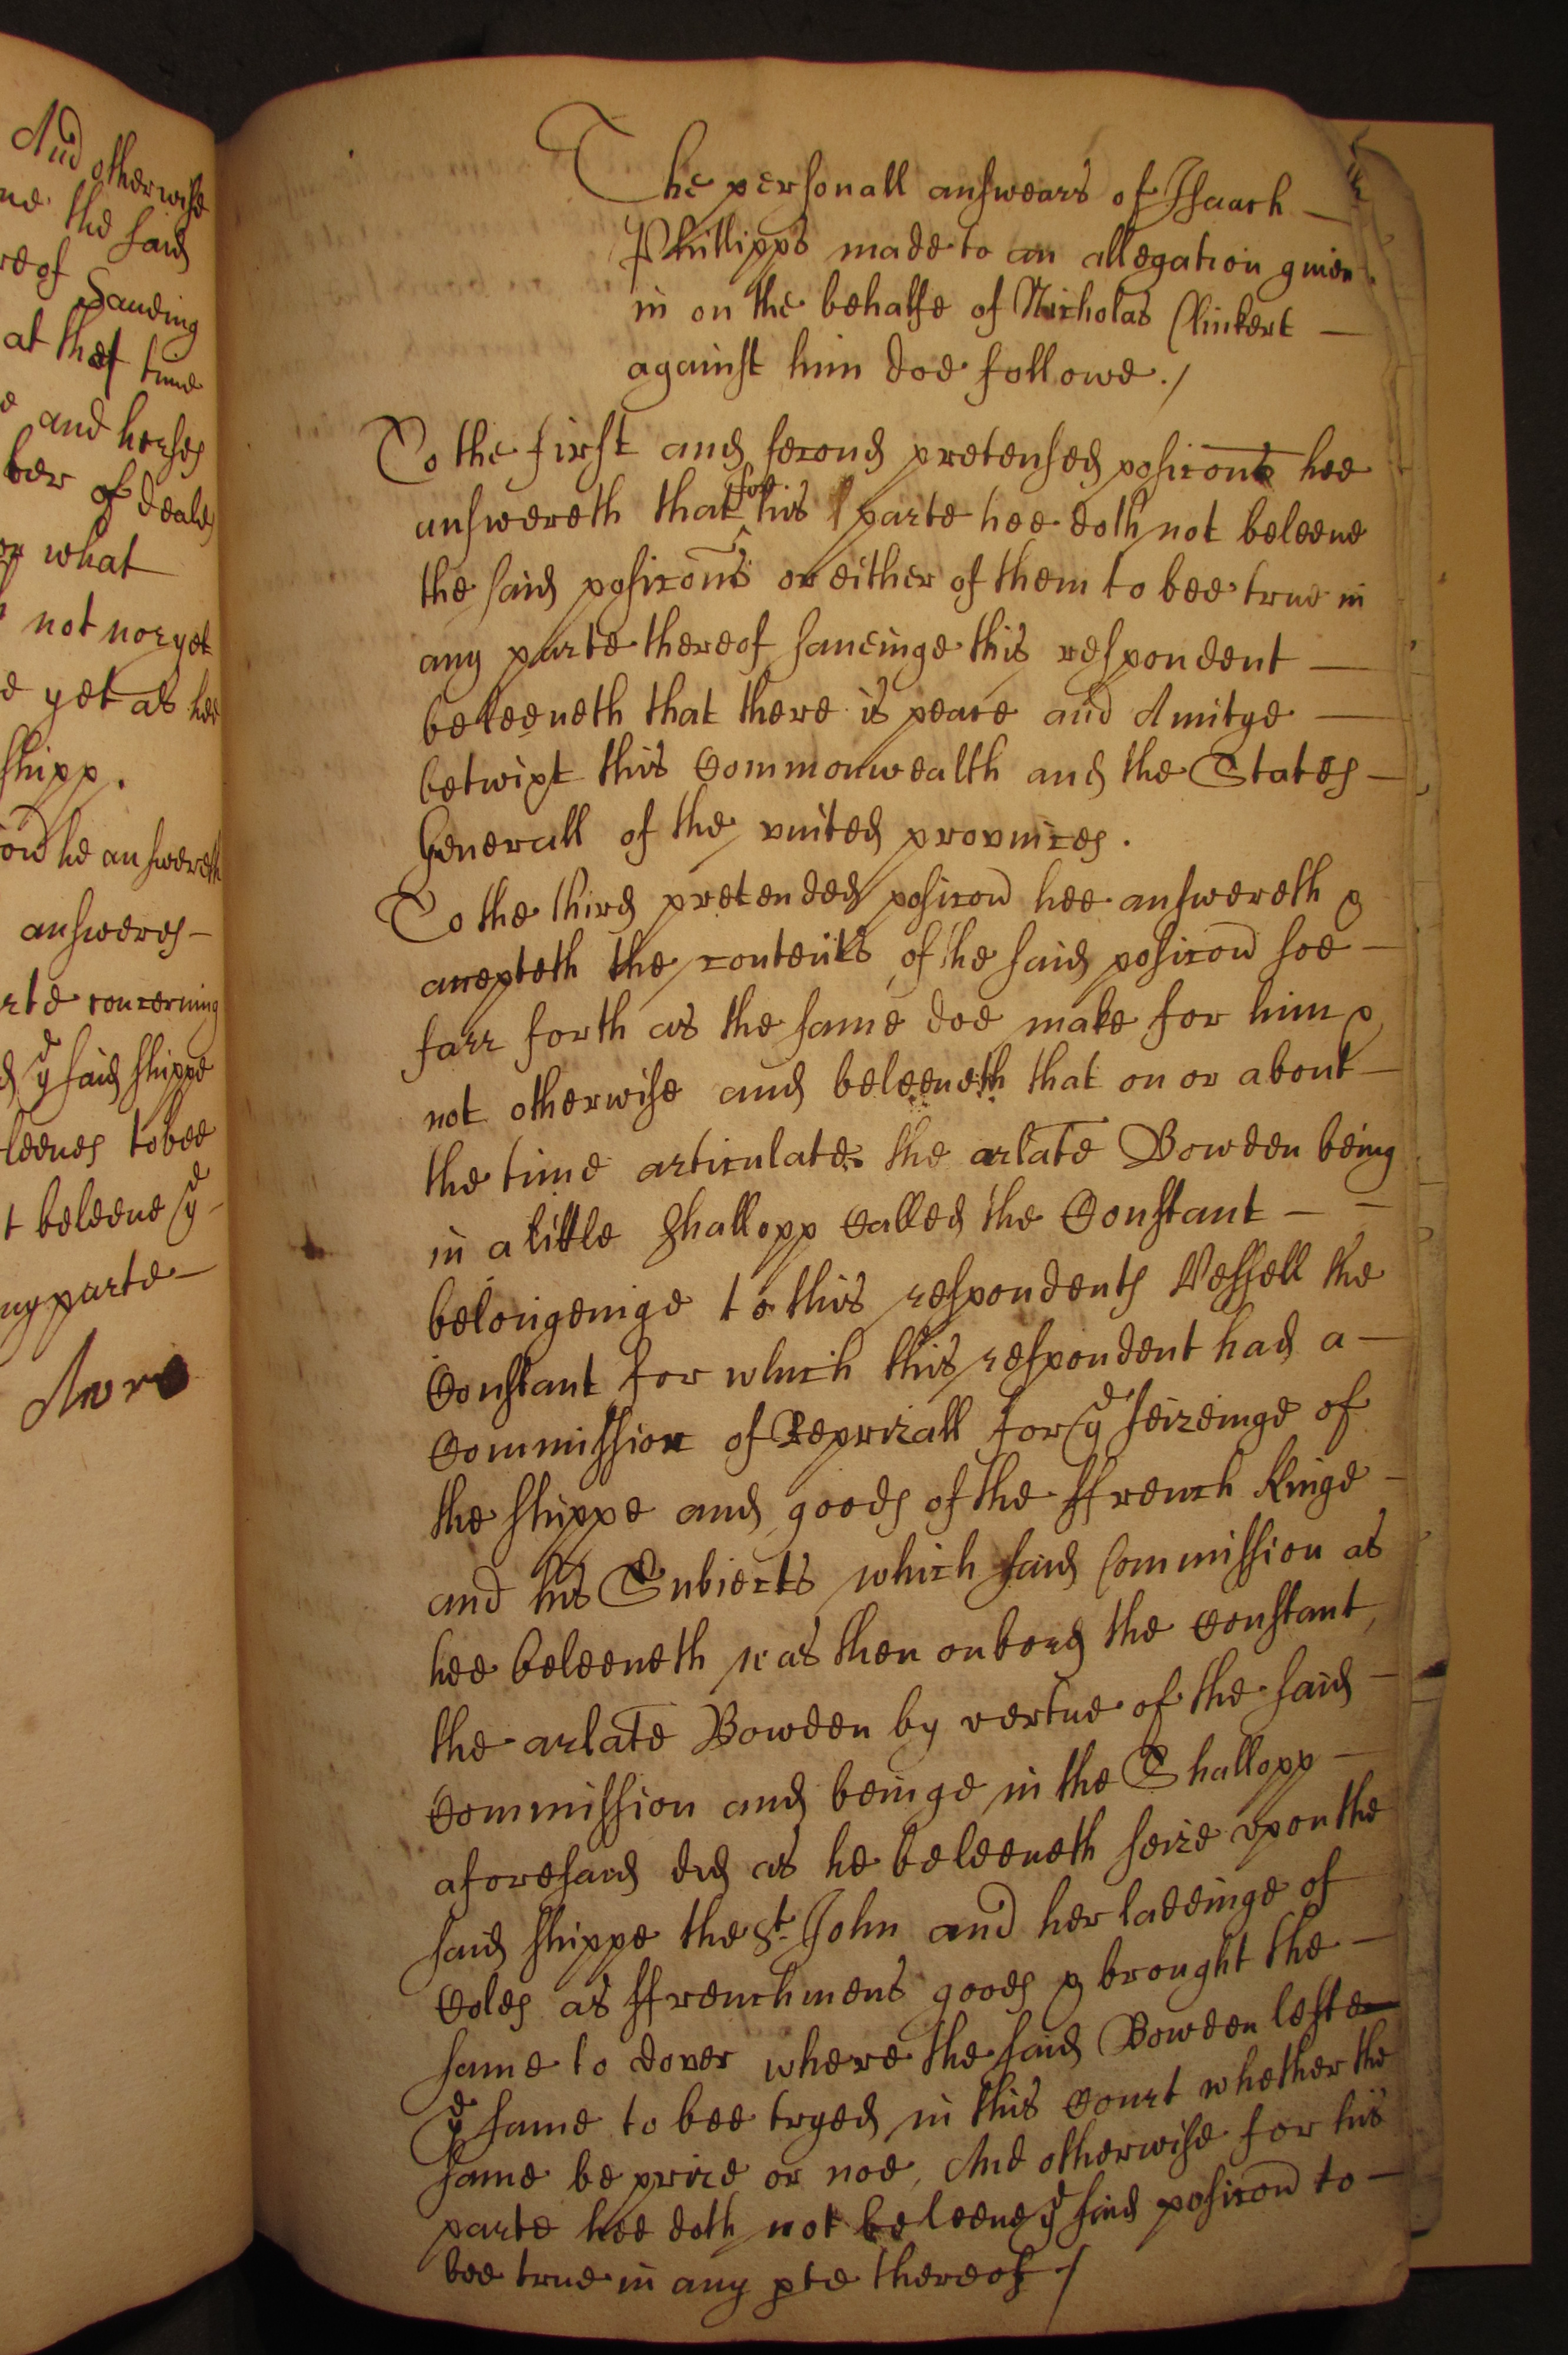 And otherwise
ne the said
reof Saveing
at that time
e and horses
ber of deales
or what
not nor yet
e yet as hee
shipp.
ion he answereth
answeres –
rte concerning
d ye said shippe
leeves to bee
t beleeve ye –
ny parte –
The personall answears of Isaach –
Phillipps made to an allegation given
in on the behalfe of Nicholas Clinkert –
against him doe followe ./
To the first and second pretensed posicons hee
answereth that for his parte hee doth not beleeve
the said posicons or either of them to bee true in
any parte thereof saveinge this respondent –
beleeveth that there is peace and Amitye –
betwixt this Commonwealth and the States –
Generall of the united provinces .
To the third pretended posicon hee answereth &
accepteth the contents of the said posicon soe –
farr forth as the same doe make for him &
not otherwise and beleeveth that on or about –
the time articulate the arlate Bowden being
in a little Shallopp Called the Constant – –
belongeinge to this respondents Vessell the
Constant for which this respondent had a –
Commission of Reprizall for ye seizeinge of
the shippe and goods of the ffrench Kinge –
and his Subiects which said Commission as
hee beleeveth was then onbord the Constant,
the arlate Bowden by vertue of the said –
Commission and beinge in the Shallopp –
aforesaid did as he beleeveth seize upon the
said shippe the St. John and her ladeinge of
Coles as ffrenchmens goods & brought the –
same to dover where the said Bowden lefte
ye same to bee tryed in this Court whether the
same be prize or noe, And otherwise for his
parte hee doth not beleeve ye said posicon to –
bee true in any pte thereof ./